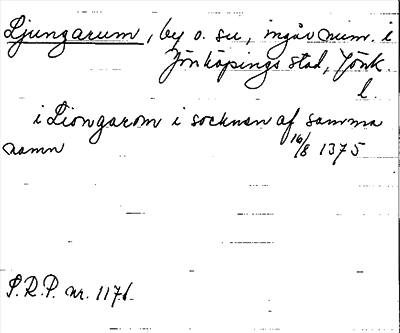 Ljungarum, by o. su, ingår num. i
Jönköpings stad, Jönk.
l.
i Liongarom i socknen af samma
namn 16/8 1375
S.R.P. nr. 1176.